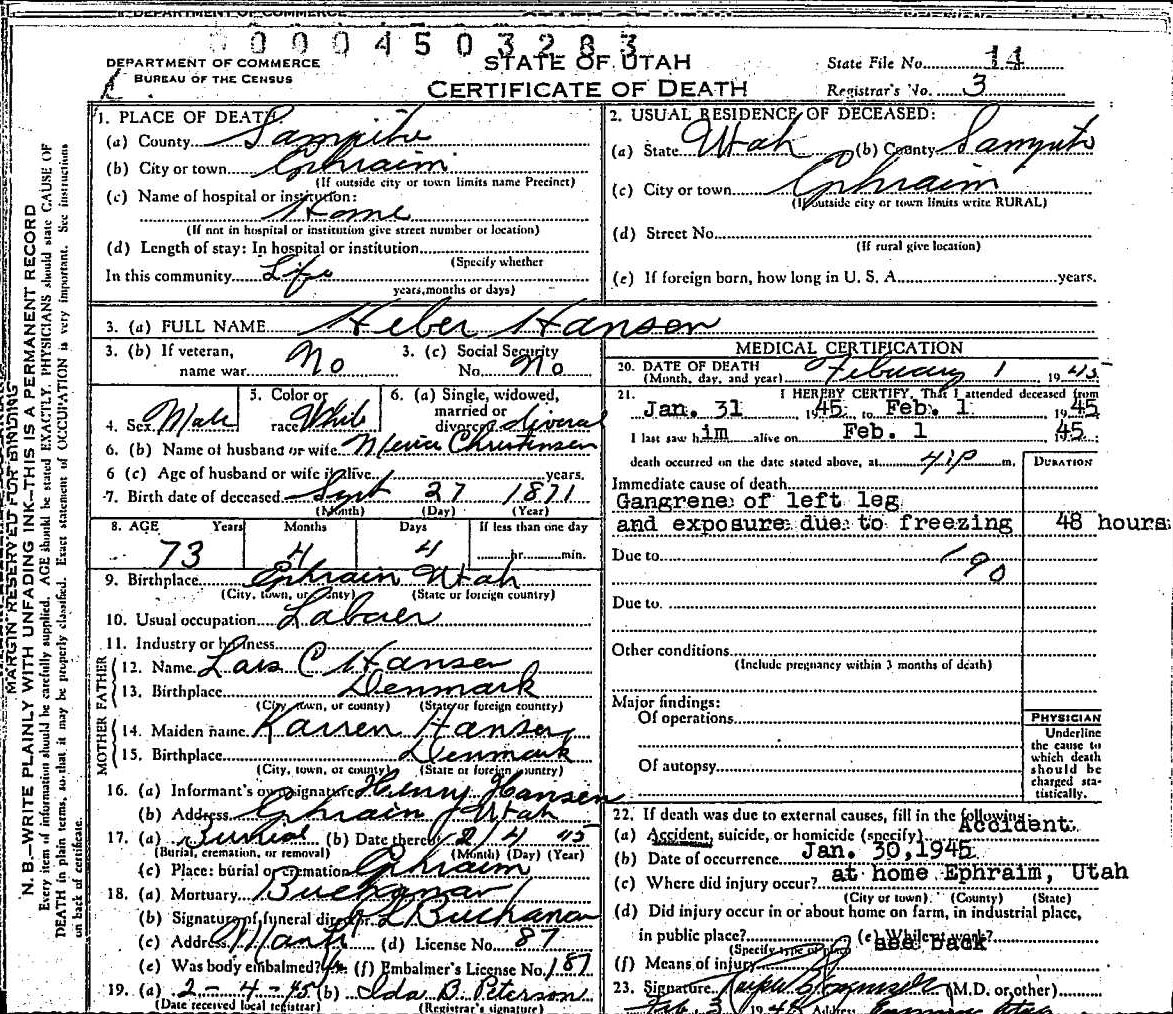 0004503283
DEPARTMENT OF COMMERCE
BUREAU OF THE CENSUS
STATE OF UTAH
CERTIFICATE OF DEATH
State File No. 14
Registrar's No. 3
MARGIN RESERVED FOR BINDING
N. B.—WRITE PLAINLY WITH UNFADING INK—THIS IS A PERMANENT RECORD
Every item of information should be carefully supplied. AGE should be stated EXACTLY. PHYSICIANS should state CAUSE OF
DEATH in plain terms, so that it may be properly classified. Exact statement of OCCUPATION is very important. See instructions
on back of certificate.
1. PLACE OF DEATH:
(a) County Sanpete
(b) City or town Ephraim
(If outside city or town limits name Precinct)
(c) Name of hospital or institution:
Home
(If not in hospital or institution give street number or location)
(d) Length of stay: In hospital or institution
(Specify whether
In this community Life
years, months or days)
2. USUAL RESIDENCE OF DECEASED:
(a) State Utah (b) County Sanpete
(c) City or town Ephraim
(If outside city or town limits write RURAL)
(d) Street No.
(If rural give location)
(e) If foreign born, how long in U. S. A. years.
3. (a) FULL NAME Heber Hansen
3. (b) If veteran, name war No
3. (c) Social Security No. No
4. Sex Male
5. Color or race White
6. (a) Single, widowed, married or divorced divorced
6. (b) Name of husband or wife Christensen
6 (c) Age of husband or wife if alive years.
7. Birth date of deceased Sept 27 1871
(Month) (Day) (Year)
8. AGE Years Months Days If less than one day
73 4 4 hr. min.
9. Birthplace Ephraim Utah
(City, town, or county) (State or foreign country)
10. Usual occupation Laborer
11. Industry or business
FATHER
12. Name Lars C Hansen
13. Birthplace Denmark
(City, town, or county) (State or foreign country)
MOTHER
14. Maiden name Karren Hansen
15. Birthplace Denmark
(City, town, or county) (State or foreign country)
16. (a) Informant's own signature Henry Hansen
(b) Address Ephraim Utah
17. (a) Burial (b) Date thereof 2/4 45
(Burial, cremation, or removal) (Month) (Day) (Year)
(c) Place: burial or cremation Ephraim
18. (a) Mortuary Buchanan
(b) Signature of funeral director Buchanan
(c) Address Manti (d) License No. 87
(e) Was body embalmed? (f) Embalmer's License No. 187
19. (a) 2-4-45 (b) Ida B. Peterson
(Date received local registrar) (Registrar's signature)
MEDICAL CERTIFICATION
20. DATE OF DEATH
(Month, day, and year) February 1 1945
21. I HEREBY CERTIFY, That I attended deceased from
Jan. 31 1945 to Feb. 1 1945
I last saw him alive on Feb. 1 45
death occurred on the date stated above, at m.
DURATION
Immediate cause of death
Gangrene of left leg
and exposure due to freezing 48 hours
Due to
190
Due to
Other conditions
(Include pregnancy within 3 months of death)
Major findings:
Of operations
Of autopsy
PHYSICIAN
Underline
the cause to
which death
should be
charged sta-
tistically.
22. If death was due to external causes, fill in the following:
(a) Accident, suicide, or homicide (specify) Accident
(b) Date of occurrence Jan. 30, 1945
(c) Where did injury occur? at home Ephraim, Utah
(City or town) (County) (State)
(d) Did injury occur in or about home on farm, in industrial place,
in public place? (e) While at work?
(Specify type of place) see back
(f) Means of injury
23. Signature (M.D. or other)
Feb. 3 Address